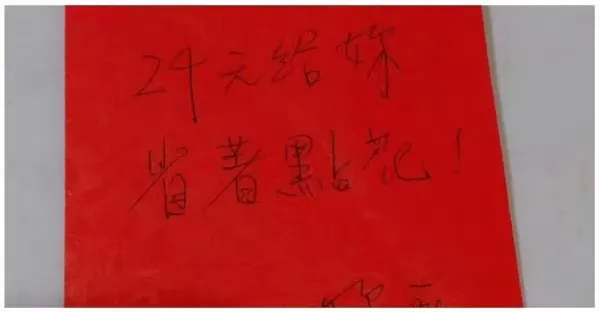 24元給妳
省著點花!